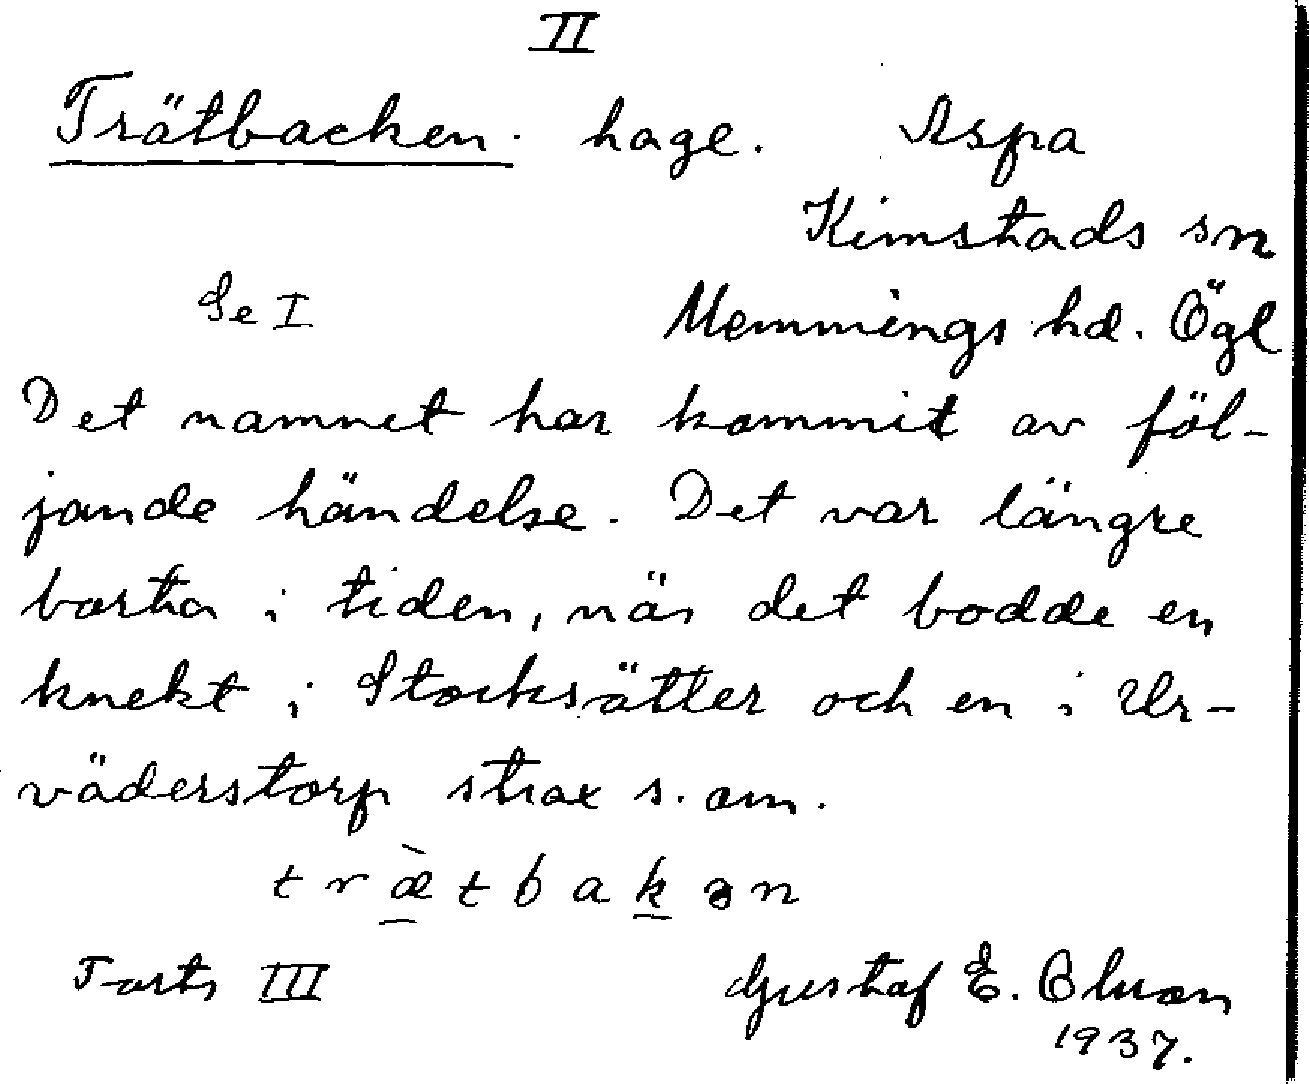 II
Trätbacken. hage. Aspa
Kimstads sn
Se I Memmings hd. Ögl
Det namnet har kommit av föl-
jande händelse. Det var längre
borta i tiden, när det bodde en
knekt i Stocksätter och en i Ur-
väderstorp strax s. om.
træ̀tbakən
Forts III Gustaf E. Olsson
1937.